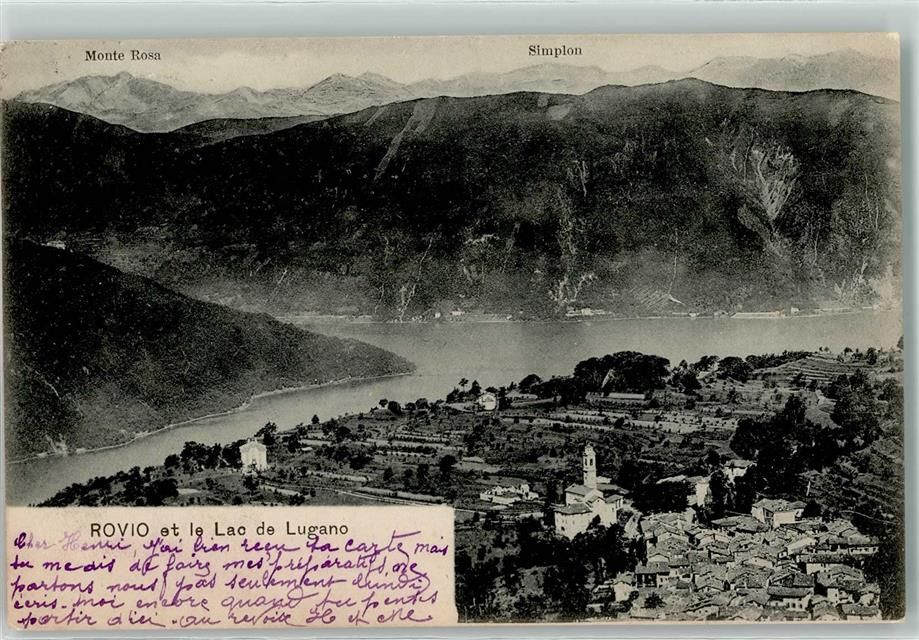 Monte Rosa
Simplon
ROVIO et le Lac de Lugano
Cher Henri, J'ai bien reçu ta carte mas
tu me dis de faire mes préparatifs, ne
partons nous pas seulement lundi
écris-moi encore quand tu penses
partir d'ici. Au revoir H et